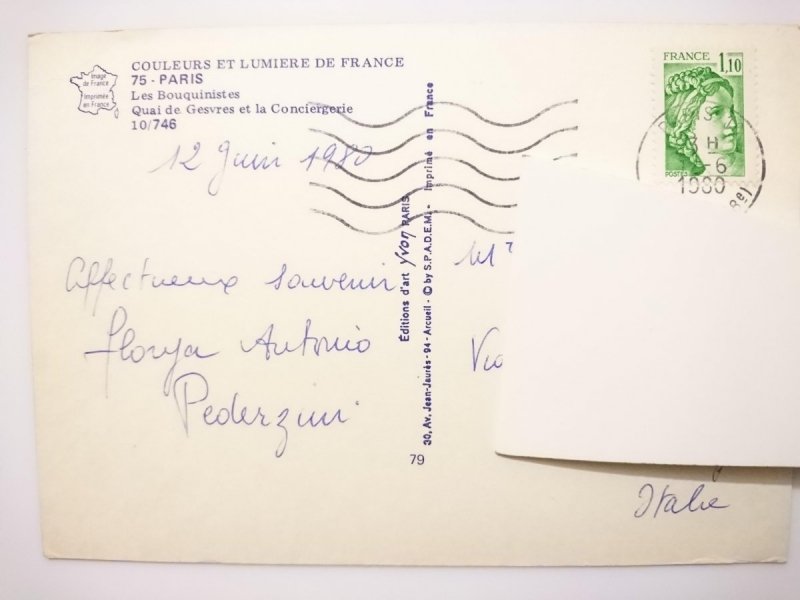 Image
de France
Imprimée
en France
COULEURS ET LUMIERE DE FRANCE
75 - PARIS
Les Bouquinistes
Quai de Gesvres et la Conciergerie
10/746
12 Juin 1980
Affectueux souvenir
Antonio
Pederzini
Editions d'art Yvon PARIS
30, Av. Jean-Jaurès - 94 - Arcueil - © by S.P.A.D.E.M. - Imprimé en France
79
FRANCE
1,10
POSTES
H
-6
1980
Italie